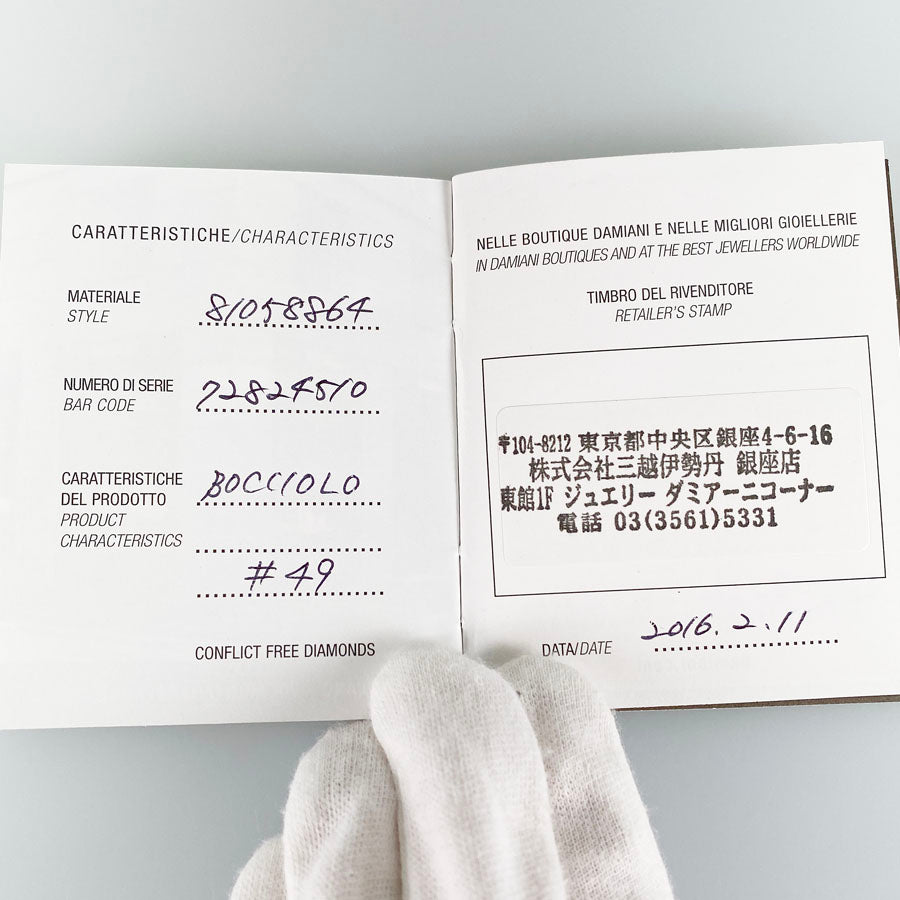 CARATTERISTICHE/CHARACTERISTICS
MATERIALE
STYLE
81058864
NUMERO DI SERIE
BAR CODE
72824510
CARATTERISTICHE
DEL PRODOTTO
PRODUCT
CHARACTERISTICS
BOCCIOLO
#49
CONFLICT FREE DIAMONDS
NELLE BOUTIQUE DAMIANI E NELLE MIGLIORI GIOIELLERIE
IN DAMIANI BOUTIQUES AND AT THE BEST JEWELLERS WORLDWIDE
TIMBRO DEL RIVENDITORE
RETAILER'S STAMP
〒104-8212 東京都中央区銀座4-6-16
株式会社三越伊勢丹 銀座店
東館1F ジュエリー ダミアーニコーナー
電話 03(3561)5331
DATA/DATE 2016.2.11